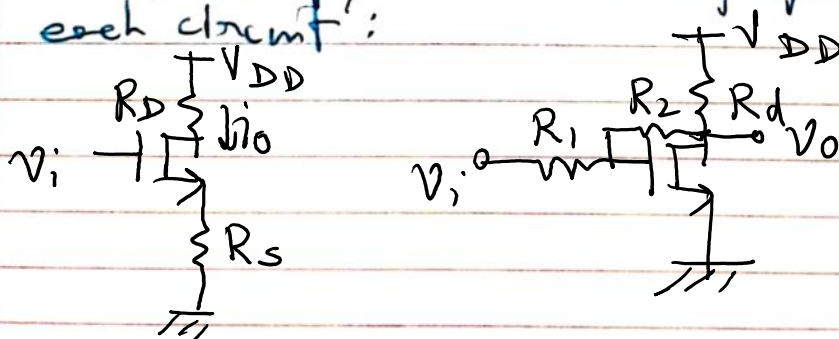 each circuit :
V_DD
R_D
i_o
V_i
R_S
V_DD
R_2
R_d
R_1
V_o
V_i